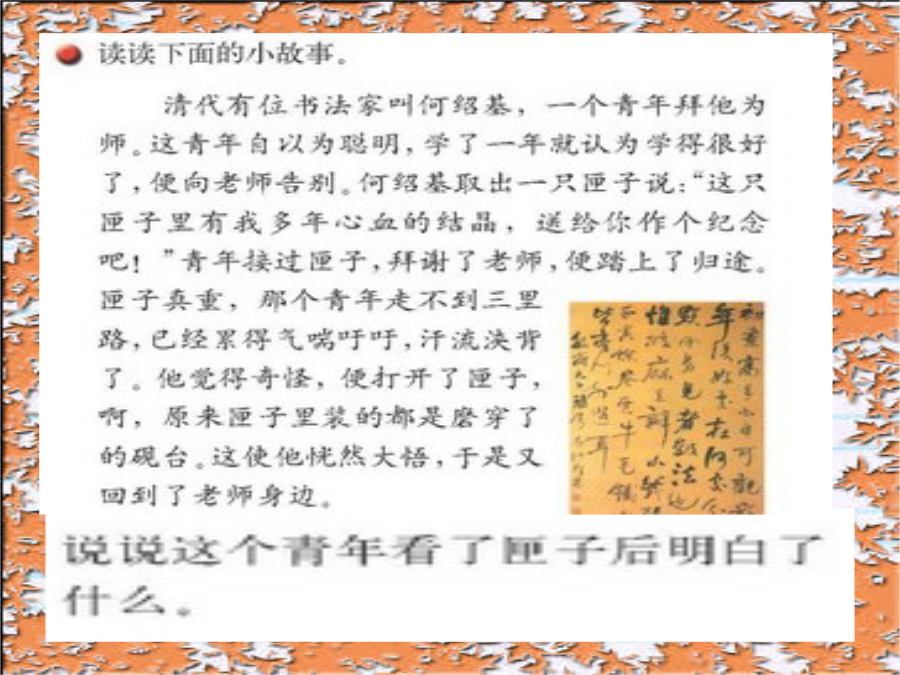 读读下面的小故事。
清代有位书法家叫何绍基，一个青年拜他为
师。这青年自以为聪明，学了一年就认为学得很好
了，便向老师告别。何绍基取出一只匣子说：“这只
匣子里有我多年心血的结晶，送给你作个纪念
吧！”青年接过匣子，拜谢了老师，便踏上了归途。
匣子真重，那个青年走不到三里
路，已经累得气喘吁吁，汗流浃背
了。他觉得奇怪，便打开了匣子，
啊，原来匣子里装的都是磨穿了
的砚台。这使他恍然大悟，于是又
回到了老师身边。
说说这个青年看了匣子后明白了
什么。